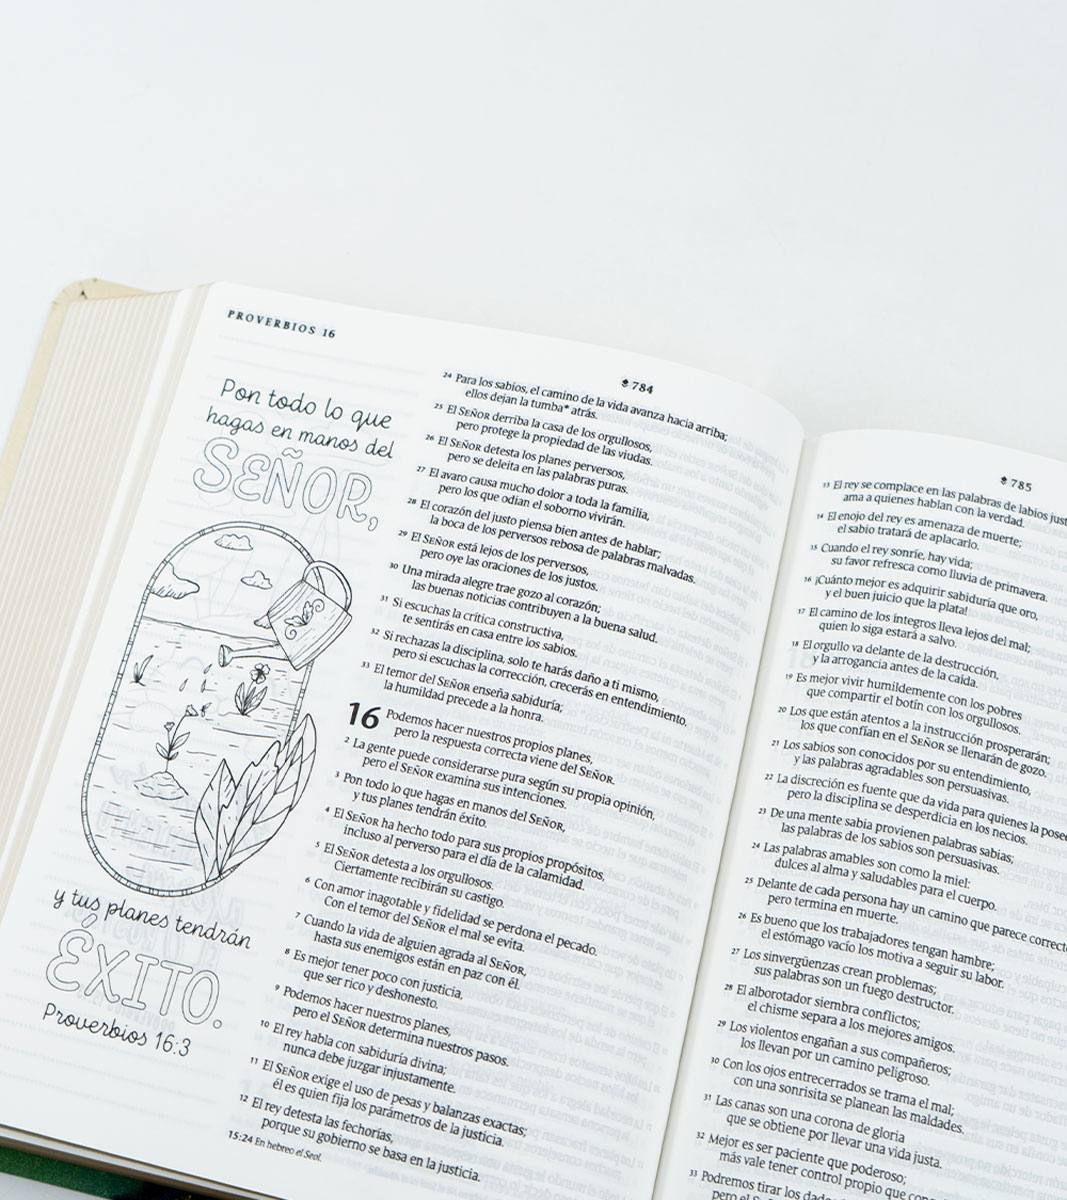 PROVERBIOS 16
784
Pon todo lo que
hagas en manos del
SEÑOR,
y tus planes tendrán
ÉXITO.
Proverbios 16:3
24 Para los sabios, el camino de la vida avanza hacia arriba;
ellos dejan la tumba* atrás.
25 El SEÑOR derriba la casa de los orgullosos,
pero protege la propiedad de las viudas.
26 El SEÑOR detesta los planes perversos,
pero se deleita en las palabras puras.
27 El avaro causa mucho dolor a toda la familia,
pero los que odian el soborno vivirán.
28 El corazón del justo piensa bien antes de hablar;
la boca de los perversos rebosa de palabras malvadas.
29 El SEÑOR está lejos de los perversos,
pero oye las oraciones de los justos.
30 Una mirada alegre trae gozo al corazón;
las buenas noticias contribuyen a la buena salud.
31 Si escuchas la crítica constructiva,
te sentirás en casa entre los sabios.
32 Si rechazas la disciplina, solo te harás daño a ti mismo,
pero si escuchas la corrección, crecerás en entendimiento.
33 El temor del SEÑOR enseña sabiduría;
la humildad precede a la honra.
16 Podemos hacer nuestros propios planes,
pero la respuesta correcta viene del SEÑOR.
2 La gente puede considerarse pura según su propia opinión,
pero el SEÑOR examina sus intenciones.
3 Pon todo lo que hagas en manos del SEÑOR,
y tus planes tendrán éxito.
4 El SEÑOR ha hecho todo para sus propios propósitos,
incluso al perverso para el día de la calamidad.
5 El SEÑOR detesta a los orgullosos.
Ciertamente recibirán su castigo.
6 Con amor inagotable y fidelidad se perdona el pecado.
Con el temor del SEÑOR el mal se evita.
7 Cuando la vida de alguien agrada al SEÑOR,
hasta sus enemigos están en paz con él.
8 Es mejor tener poco con justicia,
que ser rico y deshonesto.
9 Podemos hacer nuestros planes,
pero el SEÑOR determina nuestros pasos.
10 El rey habla con sabiduría divina;
nunca debe juzgar injustamente.
11 El SEÑOR exige el uso de pesas y balanzas exactas;
él es quien fija los parámetros de la justicia.
12 El rey detesta las fechorías,
porque su gobierno se basa en la justicia.
15:24 En hebreo el Seol.
785
13 El rey se complace en las palabras de labios just
ama a quienes hablan con la verdad.
14 El enojo del rey es amenaza de muerte;
el sabio tratará de aplacarlo.
15 Cuando el rey sonríe, hay vida;
su favor refresca como lluvia de primavera.
16 ¡Cuánto mejor es adquirir sabiduría que oro,
y el buen juicio que la plata!
17 El camino de los íntegros lleva lejos del mal;
quien lo siga estará a salvo.
18 El orgullo va delante de la destrucción,
y la arrogancia antes de la caída.
19 Es mejor vivir humildemente con los pobres
que compartir el botín con los orgullosos.
20 Los que están atentos a la instrucción prosperarán;
los que confían en el SEÑOR se llenarán de gozo.
21 Los sabios son conocidos por su entendimiento,
y las palabras agradables son persuasivas.
22 La discreción es fuente que da vida para quienes la posee
pero la disciplina se desperdicia en los necios.
23 De una mente sabia provienen palabras sabias;
las palabras de los sabios son persuasivas.
24 Las palabras amables son como la miel:
dulces al alma y saludables para el cuerpo.
25 Delante de cada persona hay un camino que parece correct
pero termina en muerte.
26 Es bueno que los trabajadores tengan hambre;
el estómago vacío los motiva a seguir su labor.
27 Los sinvergüenzas crean problemas;
sus palabras son un fuego destructor.
28 El alborotador siembra conflictos;
el chisme separa a los mejores amigos.
29 Los violentos engañan a sus compañeros;
los llevan por un camino peligroso.
30 Con los ojos entrecerrados se trama el mal;
con una sonrisita se planean las maldades.
31 Las canas son una corona de gloria
que se obtiene por llevar una vida justa.
32 Mejor es ser paciente que poderoso;
más vale tener control propio que con
33 Podremos tirar los dados
pero el SEÑOR